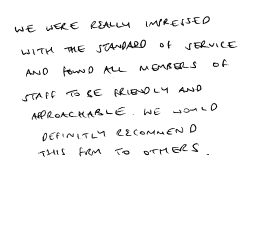 WE WERE REALLY IMPRESSED
WITH THE STANDARD OF SERVICE
AND FOUND ALL MEMBERS OF
STAFF TO BE FRIENDLY AND
APPROACHABLE. WE WOULD
DEFINITLY RECOMMEND
THIS FRM TO OTHERS.